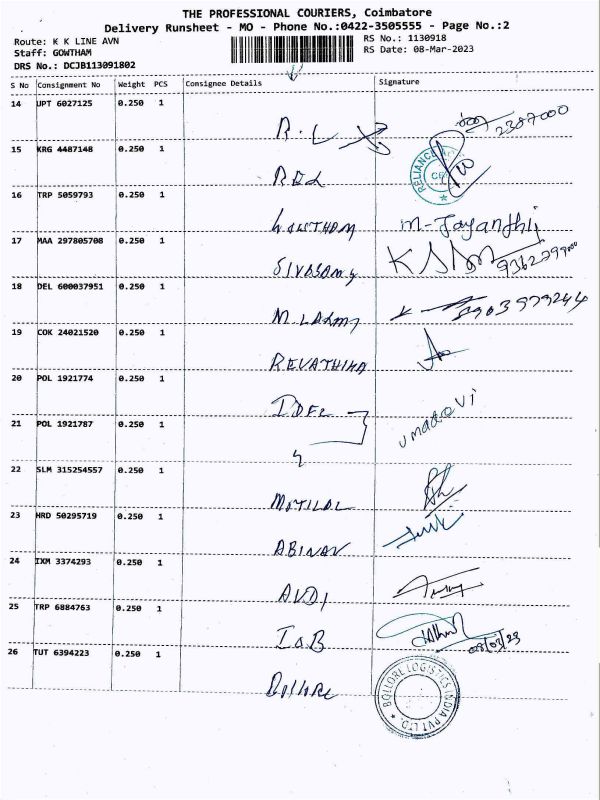 THE PROFESSIONAL COURIERS, Coimbatore
Delivery Runsheet - MO - Phone No.:0422-3505555 - Page No.:2
Route: K K LINE AVN
RS No.: 1130918
Staff: GOWTHAM
RS Date: 08-Mar-2023
DRS No.: DCJB113091802
S No Consignment No Weight PCS Consignee Details Signature
14 UPT 6027125 0.250 1
R.L
2387000
15 KRG 4487148 0.250 1
REL
RELIANCE
16 TRP 5059793 0.250 1
GOWTHAM M-Jayanthi
17 MAA 297805708 0.250 1
SIVASAMY
18 DEL 600037951 0.250 1
M.LAXMI
19 COK 24021520 0.250 1
REVATHI
20 POL 1921774 0.250 1
IDFC
21 POL 1921787 0.250 1
umadevi
22 SLM 315254557 0.250 1
MOTILAL
23 HRD 50295719 0.250 1
ABINAV
24 IXM 3374293 0.250 1
AUDI
25 TRP 6884763 0.250 1
IOB 08/03/23
26 TUT 6394223 0.250 1
Bollore BOLLORE LOGISTICS INDIA PVT LTD.